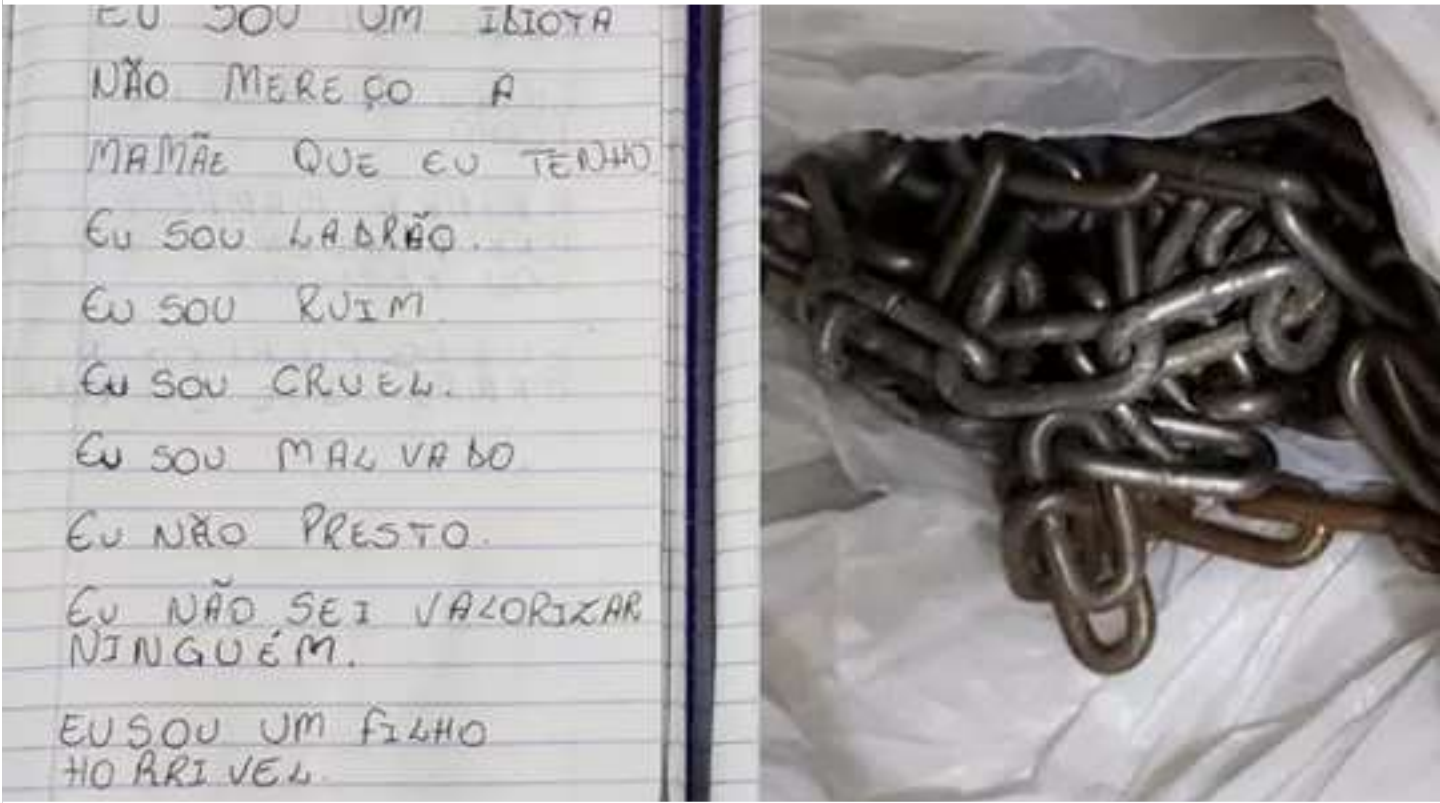 EU SOU UM IDIOTA
NÃO MEREÇO A
MAMÃE QUE EU TENHO
EU SOU LADRÃO.
EU SOU RUIM
EU SOU CRUEL.
EU SOU MALVADO
EU NÃO PRESTO.
EU NÃO SEI VALORIZAR
NINGUÉM.
EU SOU UM FILHO
HORRIVEL.